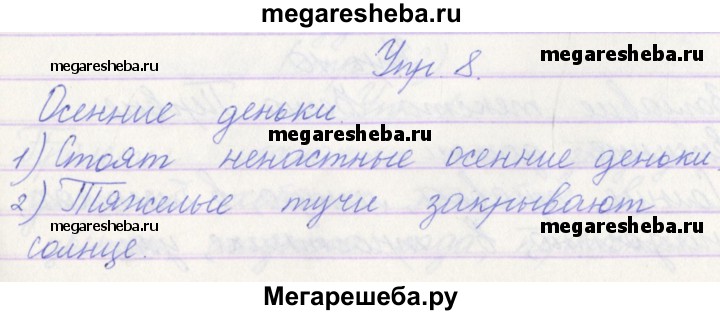 megaresheba.ru
megaresheba.ru
megaresheba.ru
Упр. 8.
Осенние деньки.
megaresheba.ru
megaresheba.ru
1) Стоят ненастные осенние деньки.
2) Тяжелые тучи закрывают
megaresheba.ru
megaresheba.ru
солнце.
Мегарешеба.ру